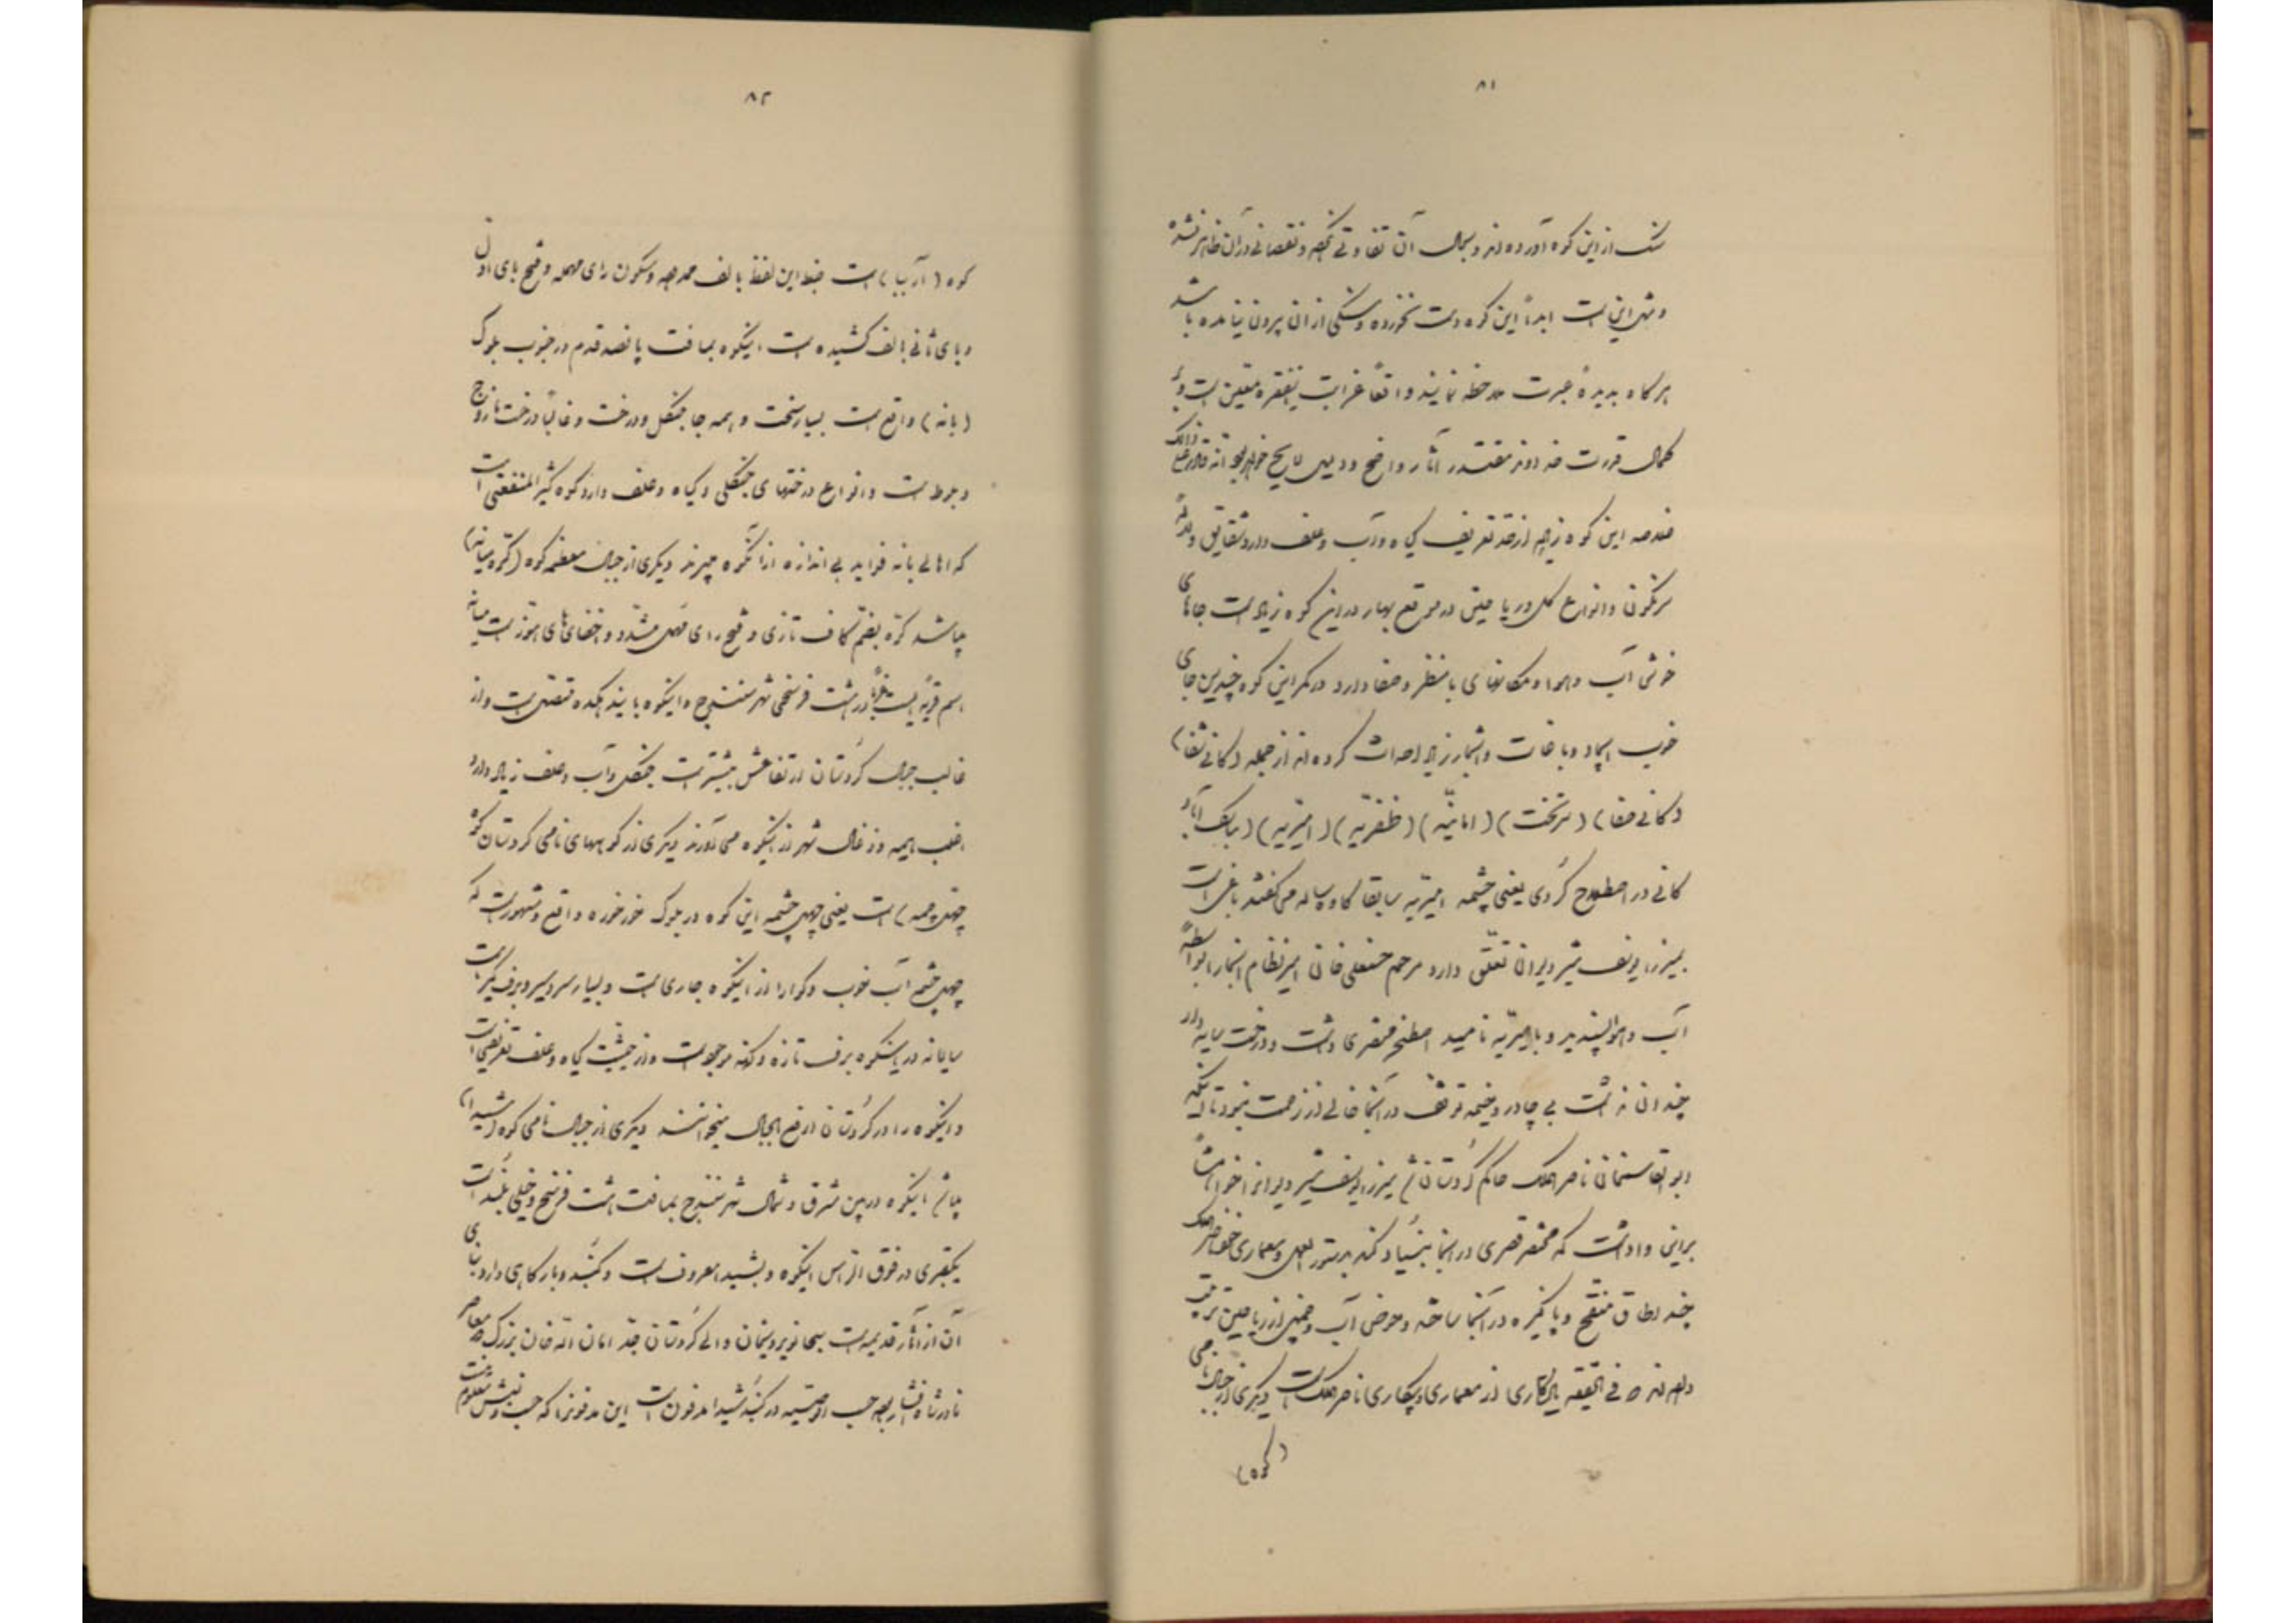 ۸۱
سنگ از این کوه آورده‌اند و بحال آن تفاوتی نکرده و نقصانی در آن ظاهر نشده
و مثل این است ابداً این کوه دست نخورده و سنگی از آن بیرون نیامده باشد
هرگاه بدیدهٔ عبرت ملاحظه نمایند واقعاً غرابت اینفقره متیقن است و بر
کمال قدرت خداوند مقتدر آثار واضح و دلیل لایح خواهد بود انه قادر علی ذالک
خلاصه این کوه زیاد از حد تعریف گیاه و آب و علف دارد شقایق و لاله
سرنگون و انواع گل و ریاحین در موقع بهار در این کوه زیاد است جاهای
خوش آب و هوا و مکانهای با منظر و صفا دارد در کمر این کوه چندین جای
خوب ایجاد و باغات و اشجار زیاد احداث کرده‌اند از جمله (کانی شفا)
(کانی صفا) (سرتخت) (امانیّه) (ظفریّه) (امیریّه) (بابک آباد)
کانی در اصطلاح کُردی یعنی چشمه امیریّه سابقا کاوه ساله می‌گفتند باغی است
بمیرزا یوسف مشیر دیوان تعلّق دارد مرحوم حسنعلی خان امیرنظام آنجا را بواسطهٔ
آب و هوا پسندید و بامیریّه نامید اصطخر مختصری داشت و درخت سایه‌دار
چندان نداشت بی چادر و خیمه توقف در آنجا خالی از زحمت نبود تا اینکه
ابوالقاسمخان ناصرالملک حاکم کُردستان شد میرزا یوسف مشیر دیوان را
براین واداشت که مختصر قصری در آنجا بنیاد کند بدستورالعمل و معماری خود ناصرالملک
چند اطاق منقح و پاکیزه در آنجا ساخته و حوض آب و چمنی از ریاحین ترتیب
داده‌اند که فی الحقیقه یادگاری از معماری و پیکاری ناصرالملک است دیگری از جبال نامی
(کوه)
۸۲
کوه (آربابا) است ضبط این لفظ بالف ممدوده و سکون رای مهمله و فتح بای اول
و بای ثانی بالف کشیده است اینکوه بمسافت پانصد قدم در جنوب بلوک
(بانه) واقع است بسیار سخت و همه جا جنگل و درخت و غالباً درخت مازوج
و بلوط است و انواع درختهای جنگلی و گیاه و علف دارد کوه کثیرالمنفعتی است
که اهالی بانه فواید بی اندازه از آنکوه میبرند دیگری از جبال معظمه کوه (کرّه میانه)
میباشد کرّه بضم کاف تازی و فتح رای مهمل مشدّد و خفای های هوّز است میانه
اسم قریه ایست در هشت فرسخی شهر سنندج و اینکوه باین دهکده متصل است و از
غالب جبال کُردستان ارتفاعش بیشتر است جنگل و آب و علف زیاد دارد
اغلب هیمه و زغال شهر از اینکوه می‌آورند دیگری از کوههای نامی کردستان کوه
(چهل چمه) است یعنی چهل چشمه این کوه در بلوک خورخوره واقع و مشهور است که
چهل چشمه آب خوب و گوارا از اینکوه جاری است و بسیار سردسیر و برف‌گیر است
سالیانه در اینکوه برف تازه و کهنه موجود است و از حیثیت گیاه و علف تعریفی است
و اینکوه را در کُردستان ارفع الجبال میخوانند دیگری از جبال نامی کوه (شیدا)
میباشد اینکوه در بین مشرق و شمال شهر سنندج بمسافت هشت فرسخ و خیلی بلند است
یکقبری در فوق الراس اینکوه و بشیدا معروف است و گنبد و بارگاهی دارد بنای
آن از آثار قدیمه است سبحانویردیخان والی کُردستان جدّ امان الله خان بزرگ معاصر
نادرشاه افشار بوده حسب الوصیّه در گنبد شیدا مدفون است این مدفونرا که حسب و نسبش معلوم نیست